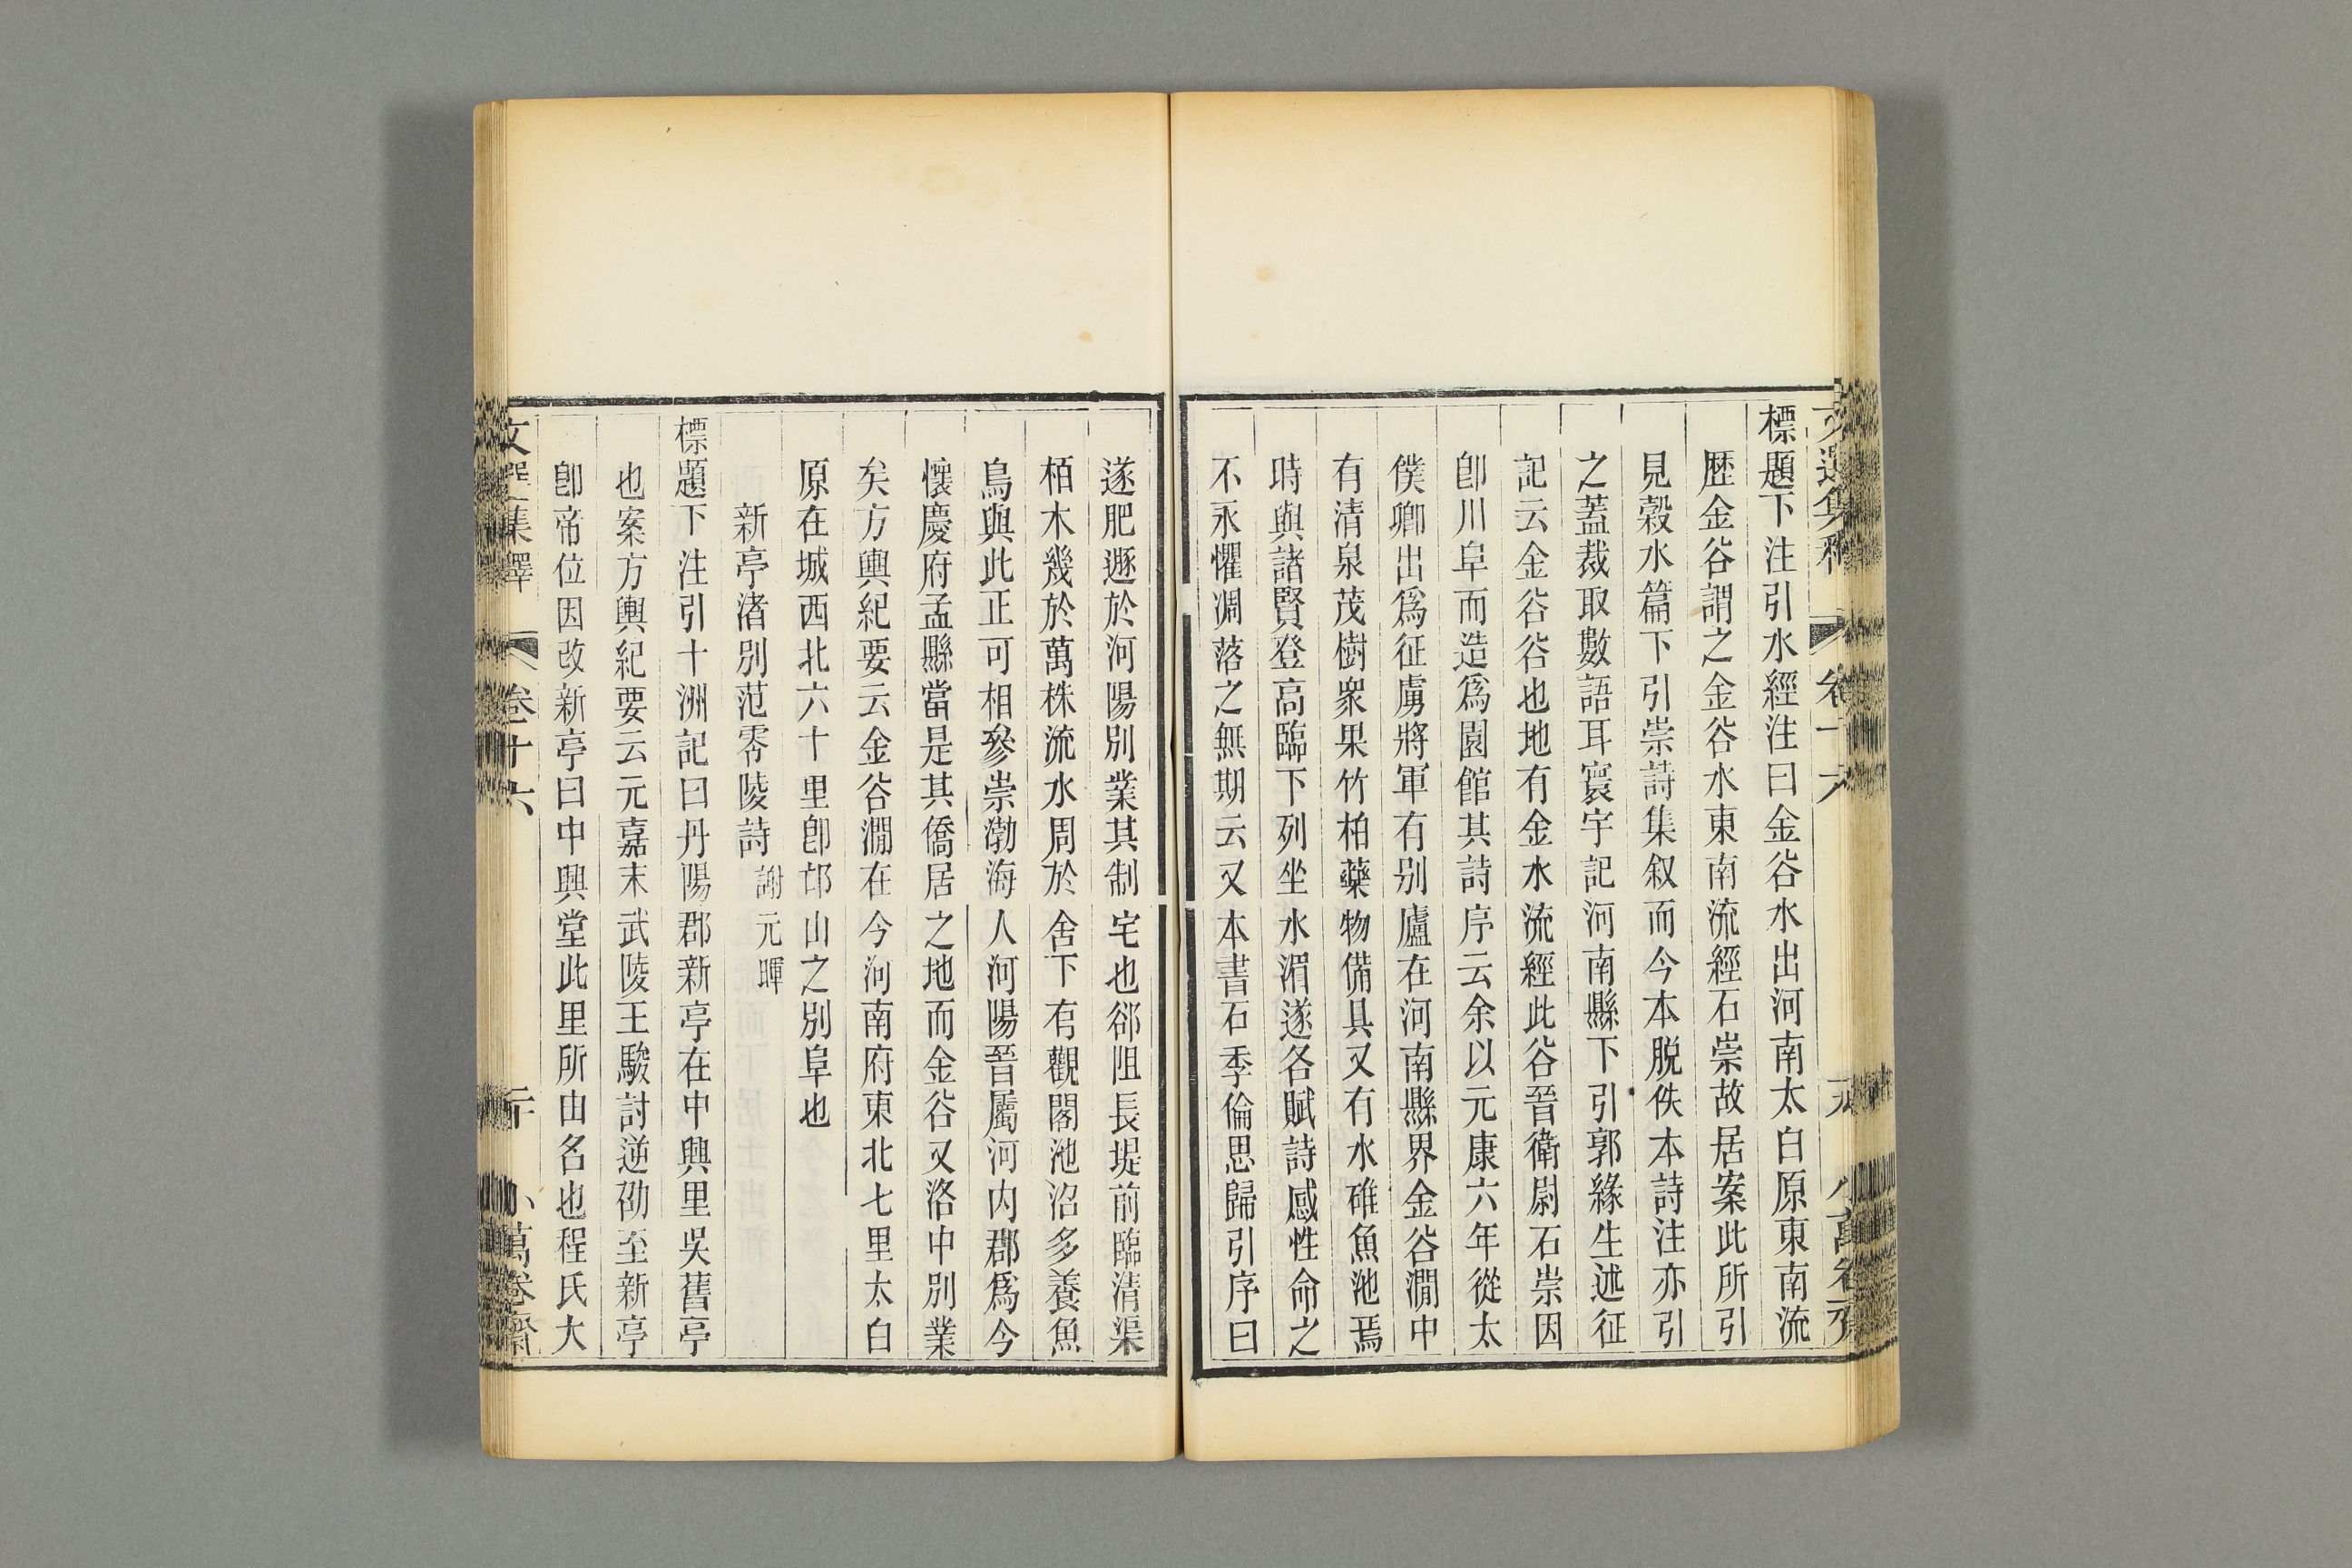 標題下注引水經注曰金谷水出河南太白原東南流
歷金谷謂之金谷水東南流經石崇故居案此所引
見穀水篇下引崇詩集叙而今本脫佚本詩注亦引
之蓋裁取數語耳寰宇記河南縣下引郭緣生述征
記云金谷谷也地有金水流經此谷晉衛尉石崇因
卽川阜而造爲園館其詩序云余以元康六年從太
僕卿出爲征虜將軍有別廬在河南縣界金谷澗中
有清泉茂樹衆果竹柏藥物備具又有水碓魚池焉
時與諸賢登高臨下列坐水湄遂各賦詩感性命之
不永懼凋落之無期云又本書石季倫思歸引序曰
遂肥遯於河陽別業其制宅也郤阻長堤前臨清渠
栢木幾於萬株流水周於舍下有觀閣池沼多養魚
鳥與此正可相參崇渤海人河陽晉屬河內郡爲今
懷慶府孟縣當是其僑居之地而金谷又洛中別業
矣方輿紀要云金谷澗在今河南府東北七里太白
原在城西北六十里卽邙山之別阜也
新亭渚別范零陵詩 謝元暉
標題下注引十洲記曰丹陽郡新亭在中興里吳舊亭
也案方輿紀要云元嘉末武陵王駿討逆劭至新亭
卽帝位因改新亭曰中興堂此里所由名也程氏大
文選集釋 卷十六 二十 小萬卷齋